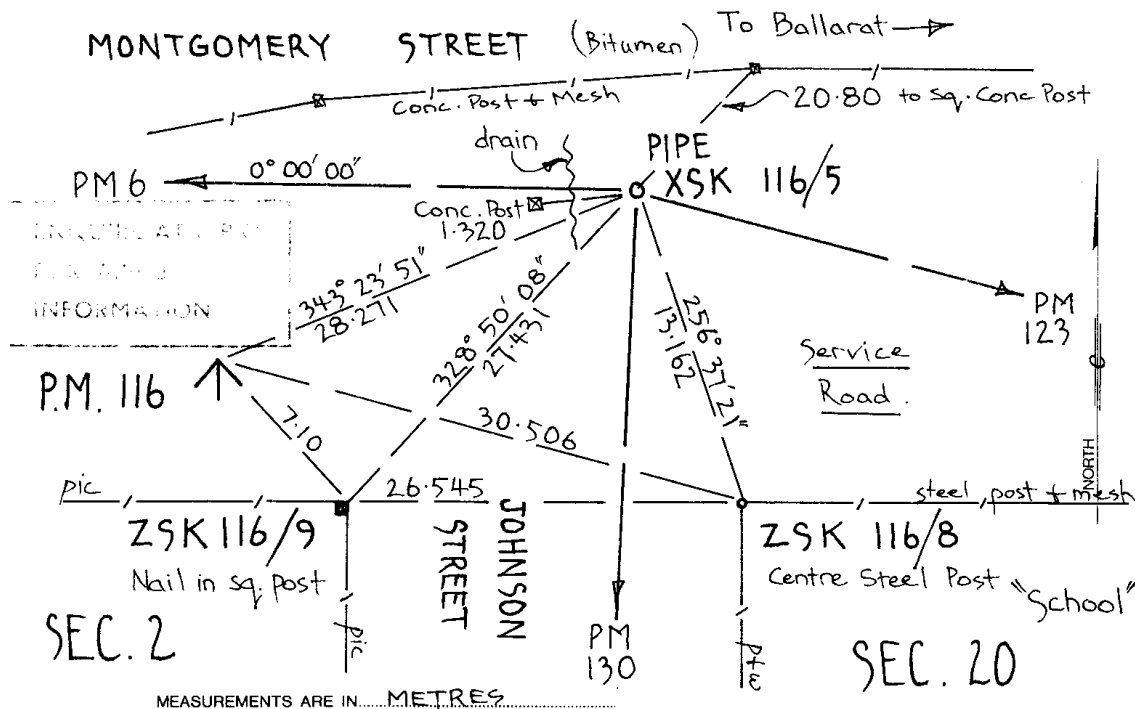 MONTGOMERY STREET (Bitumen) To Ballarat
Conc. Post + Mesh
20.80 to Sq. Conc Post
drain
PIPE
PM 6
0° 00' 00"
XSK 116/5
Conc. Post
1.320
INFORMATION
343° 23' 51"
28.271
328° 50' 08"
27.431
256° 37' 21"
13.162
PM
123
Service
Road.
P.M. 116
7.10
30.506
NORTH
pic
26.545
steel post + mesh
ZSK 116/9
JOHNSON
STREET
ZSK 116/8
Nail in sq. post
Centre Steel Post
"School"
SEC. 2
pic
PM
130
p+w
SEC. 20
MEASUREMENTS ARE IN METRES